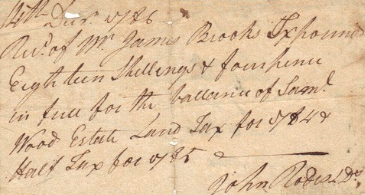 14th Decr. 1786
Recd. of Mr. James Brooks Six pound
Eighteen Shillings & fourpence
in full for the ballance of Saml.
Wood Estate Land Tax for 1784 &
Half Tax for 1785
John Rodes